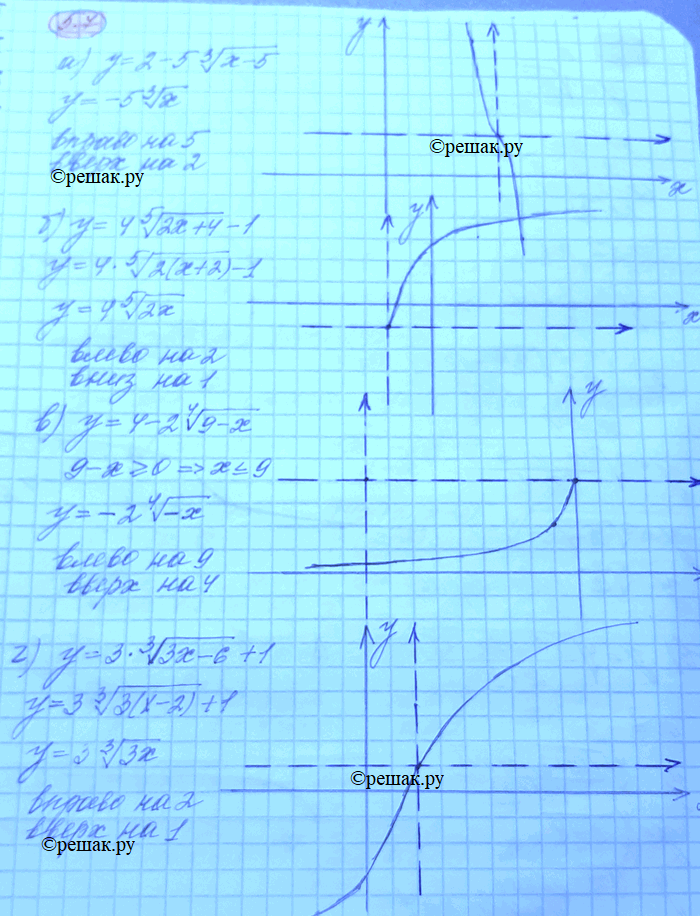 5.7
а) y = 2 - 5 ∛(x-5)
y = -5∛x
вправо на 5
вверх на 2
©решак.ру
y
©решак.ру
x
б) y = 4 ⁵√(2x+4) - 1
y = 4 · ⁵√(2(x+2)) - 1
y = 4 ⁵√(2x)
влево на 2
вниз на 1
y
x
в) y = 4 - 2 ⁴√(9-x)
9-x ≥ 0 => x ≤ 9
y = -2 ⁴√(-x)
влево на 9
вверх на 4
y
г) y = 3 · ∛(3x-6) + 1
y = 3 ∛(3(x-2)) + 1
y = 3 ∛(3x)
вправо на 2
вверх на 1
©решак.ру
y
©решак.ру